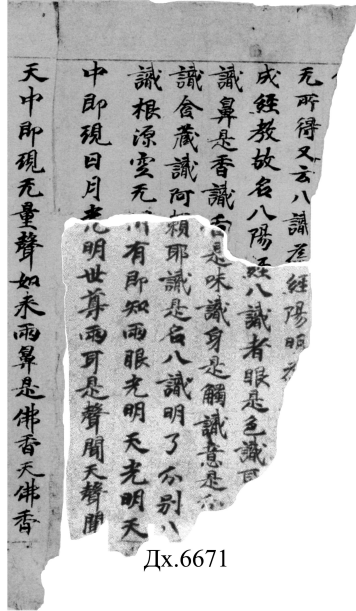 无所得又云八識為經陽明
成經教故名八陽經八識者眼是色識耳
識鼻是香識舌是味識身是觸識意是分
識含藏識阿賴耶識是名八識明了分別八
識根源空无所有即知兩眼光明天光明天
中即現日月光明世尊兩耳是聲聞天聲聞
天中即現无量聲如来兩鼻是佛香天佛香
Дх.6671